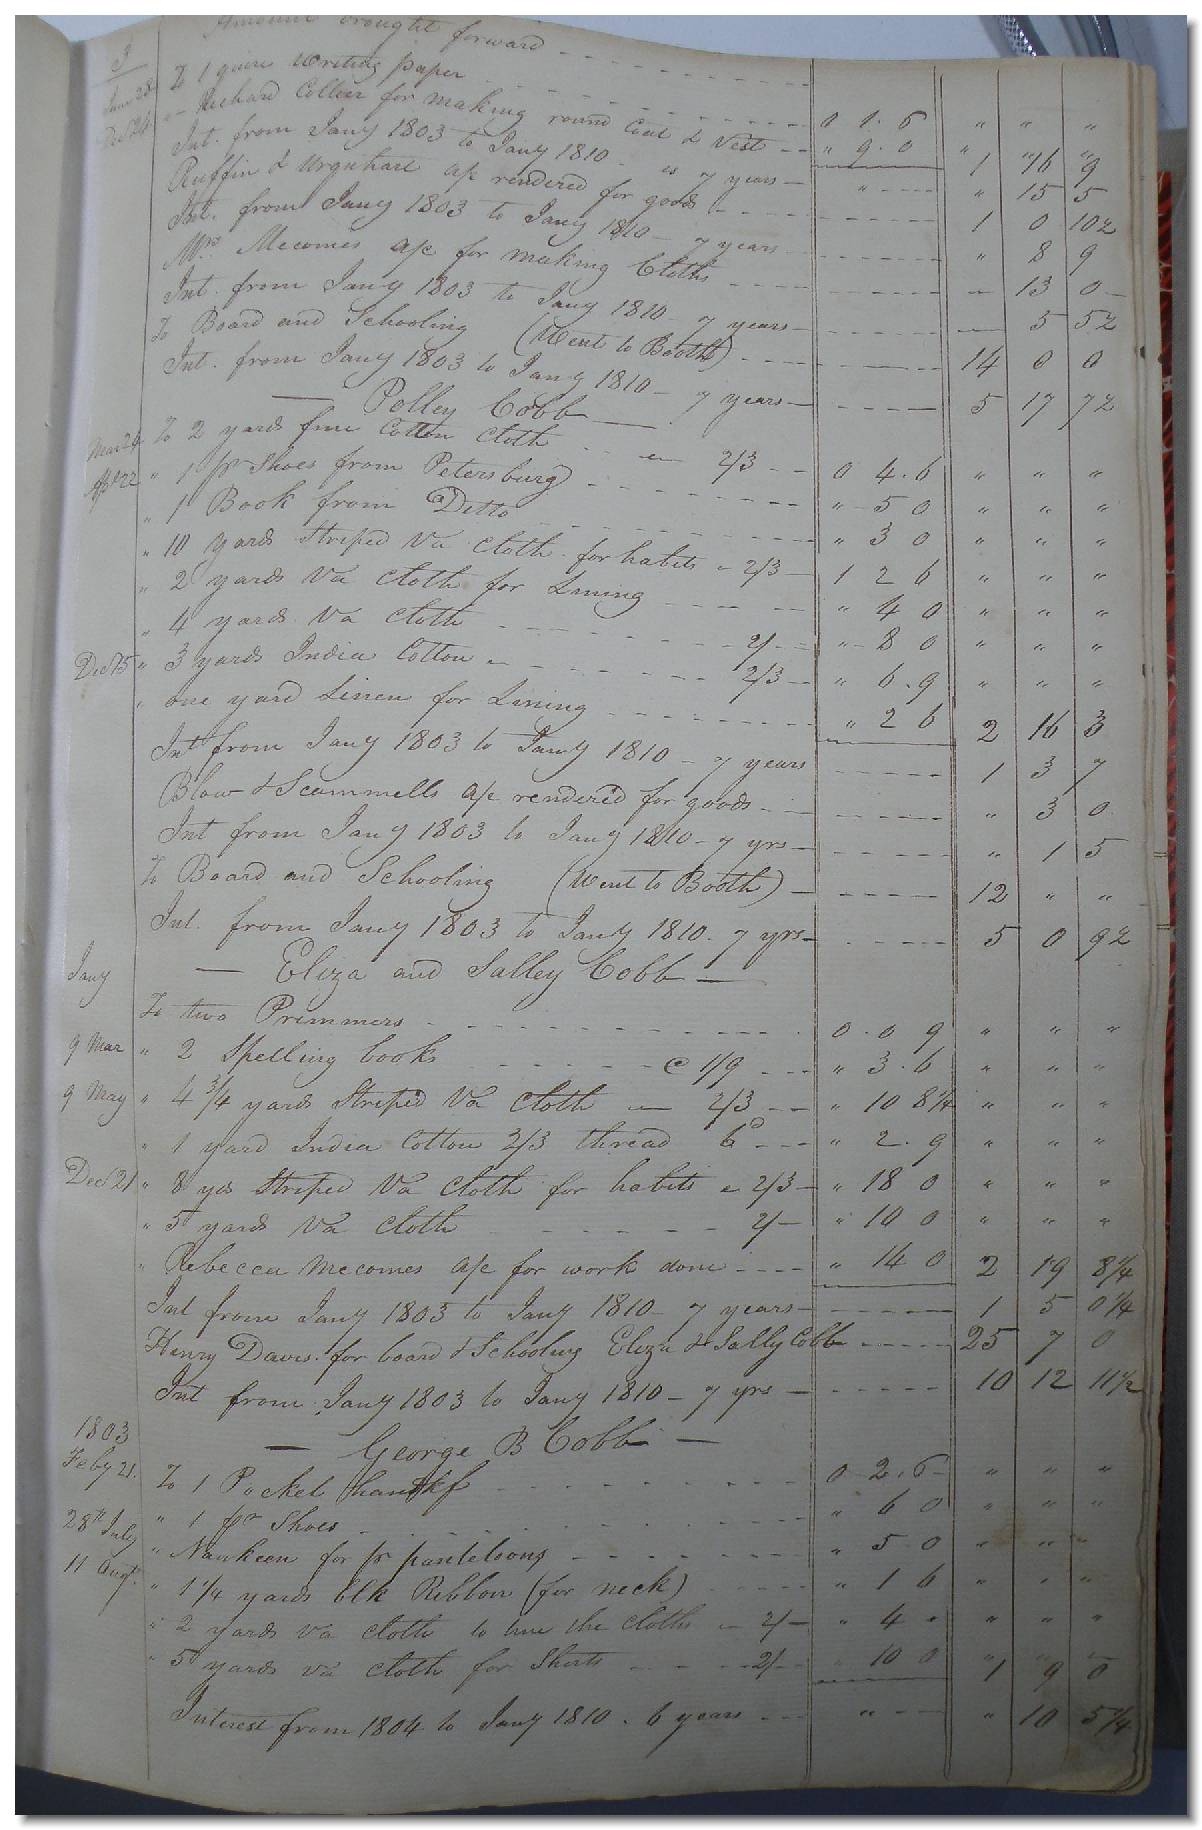 Amount brought forward
3
Jany 28 To 1 quire writing paper 0 1. 6 " " "
Dec 24 " Richard Collier for making round Coat & Vest " 9. 0 " 16 9
Int. from Jany 1803 to Jany 1810 is 7 years " " 15 5
Ruffin & Urquhart a/c rendered for goods 1 0 10½
Int. from Jany 1803 to Jany 1810 7 years " 8 9
Mrs. Mecomes a/c for making Cloths 13 0
Int. from Jany 1803 to Jany 1810 7 years 5 5½
To Board and Schooling (Went to Booth) 14 0 0
Int. from Jany 1803 to Jany 1810 7 years 5 17 7½
Polley Cobb
Mar 26 To 2 yards fine Cotton Cloth 2/3 0 4. 6 " " "
Apl 22 " 1 pr Shoes from Petersburg " 5 0 " " "
" 1 Book from Ditto " 3 0 " " "
" 10 yards Striped Va Cloth for habits 2/3 1 2 6 " " "
" 2 yards Va Cloth for Lining " 4 0 " " "
" 4 yards Va Cloth 2/ " 8 0 " " "
Dec 15 " 3 yards India Cotton 2/3 " 6. 9 " " "
" one yard Linen for Lining " 2 6 2 16 3
Int from Jany 1803 to Jany 1810 7 years 1 3 7
Blow & Scammells a/c rendered for goods " 3 0
Int from Jany 1803 to Jany 1810 7 yrs " 1 5
To Board and Schooling (Went to Booth) 12 " "
Int. from Jany 1803 to Jany 1810. 7 yrs 5 0 9½
Jany Eliza and Salley Cobb
To two Primmers 0. 0 9 " " "
9 Mar " 2 Spelling books @ 1/9 " 3. 6 " " "
9 May " 4 3/4 yards Striped Va Cloth 2/3 " 10 8 1/4 " " "
" 1 yard India Cotton 2/3 thread 6d " 2. 9 " " "
Dec 21 " 8 yds Striped Va Cloth for habits 2/3 " 18 0 " " "
" 5 yards Va Cloth 2/ " 10 0 " " "
" Rebecca Mecomes a/c for work done " 14 0 2 19 8 1/4
Int from Jany 1803 to Jany 1810 7 years 1 5 0 1/4
Henry Davis for board & Schooling Eliza & Sally Cobb 25 7 0
Int from Jany 1803 to Jany 1810 7 yrs 10 12 11 1/2
1803 George B Cobb
Feby 21. To 1 Pocket handkf 0 2. 6 " " "
" 1 pr Shoes " 6 0 " " "
28th July " Nankeen for pr panteloons " 5 0 " " "
11 Augt. " 1 1/4 yards blk Ribbon (for neck) " 1 6 " " "
" 2 yards Va Cloth to line the Cloths 2/ " 4 " " " "
" 5 yards Va Cloth for Shirts 2/ " 10 0 1 9 0
Interest from 1804 to Jany 1810. 6 years " " 10 5 1/4